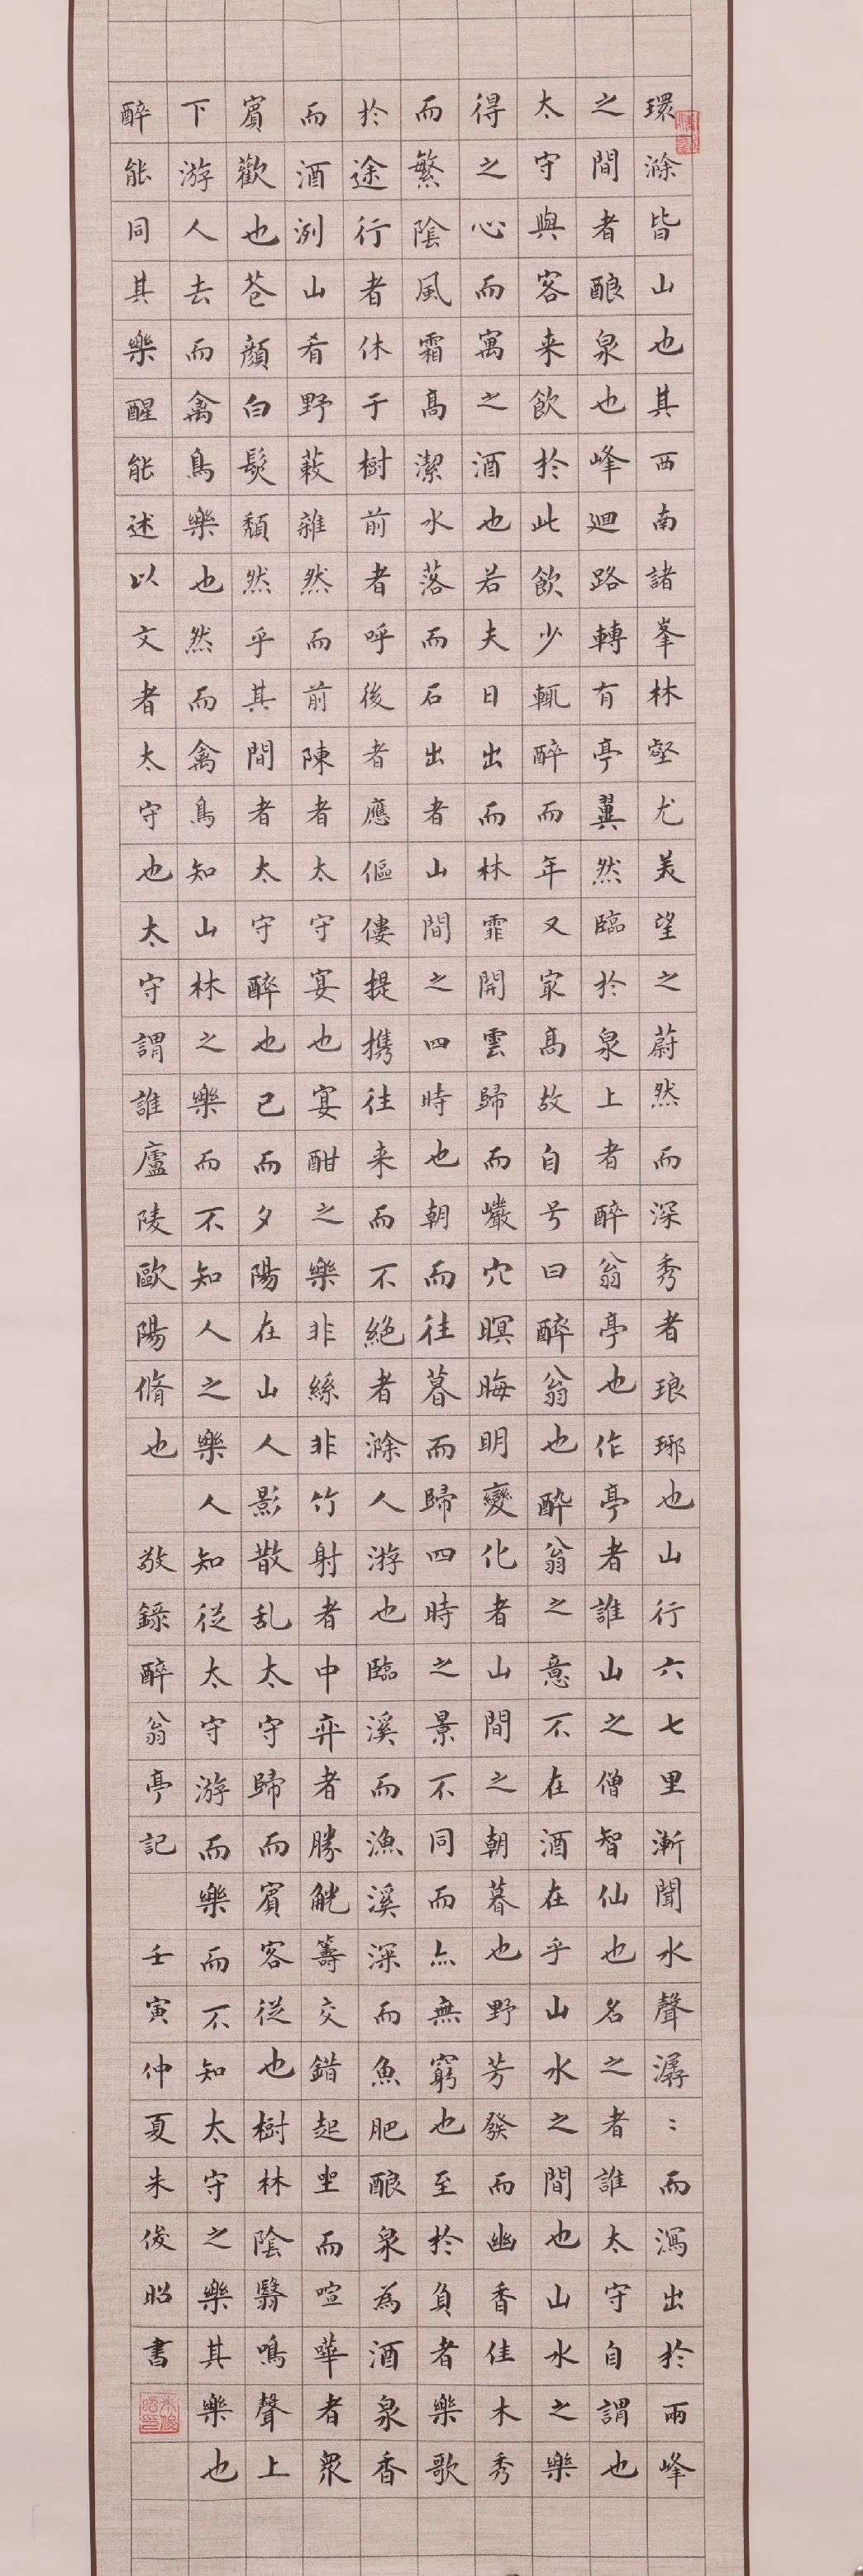 環滁皆山也其西南諸峯林壑尤美望之蔚然而深秀者琅琊也山行六七里漸聞水聲潺〻而瀉出於兩峰
之間者釀泉也峰迴路轉有亭翼然臨於泉上者醉翁亭也作亭者誰山之僧智仙也名之者誰太守自謂也
太守與客来飲於此飲少輒醉而年又冣高故自号曰醉翁也醉翁之意不在酒在乎山水之間也山水之樂
得之心而寓之酒也若夫日出而林霏開雲歸而巖穴暝晦明變化者山間之朝暮也野芳發而幽香佳木秀
而繁陰風霜高潔水落而石出者山間之四時也朝而往暮而歸四時之景不同而亦無窮也至於負者樂歌
於途行者休于樹前者呼後者應傴僂提携往来而不絕者滁人游也臨溪而漁溪深而魚肥釀泉為酒泉香
而酒洌山肴野蔌雜然而前陳者太守宴也宴酣之樂非絲非竹射者中弈者勝觥籌交錯起坐而喧嘩者衆
賓歡也蒼顏白髮頹然乎其間者太守醉也已而夕陽在山人影散乱太守歸而賓客從也樹林陰翳鳴聲上
下游人去而禽鳥樂也然而禽鳥知山林之樂而不知人之樂人知從太守游而樂而不知太守之樂其樂也
醉能同其樂醒能述以文者太守也太守謂誰廬陵歐陽脩也 敬錄醉翁亭記 壬寅仲夏朱俊昭書